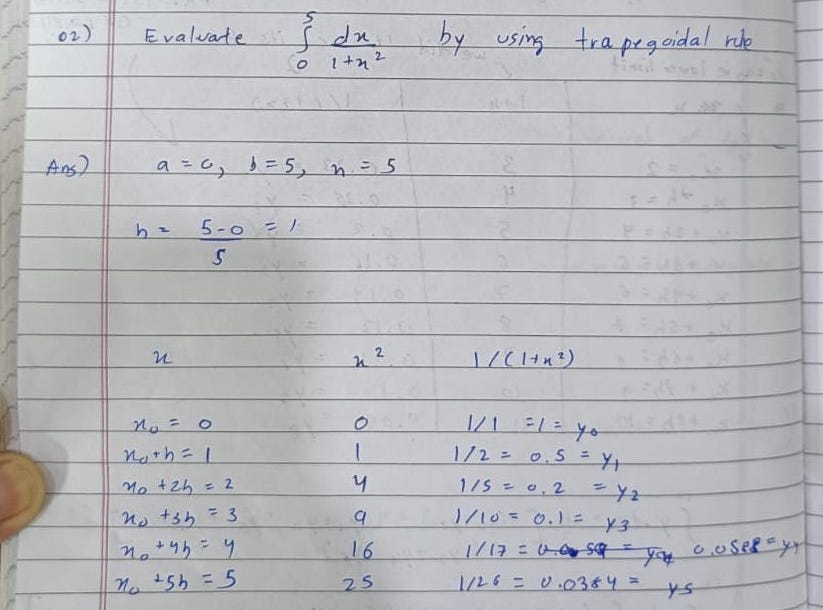 02) Evaluate ∫₀⁵ dx/(1+x²) by using trapegoidal rule
Ans) a = 0, b = 5, n = 5
h = (5-0)/5 = 1
x x² 1/(1+x²)
x₀ = 0 0 1/1 = 1 = y₀
x₀+h = 1 1 1/2 = 0.5 = y₁
x₀+2h = 2 4 1/5 = 0.2 = y₂
x₀+3h = 3 9 1/10 = 0.1 = y₃
x₀+4h = 4 16 1/17 = 0.0588 = y₄
x₀+5h = 5 25 1/26 = 0.0384 = y₅